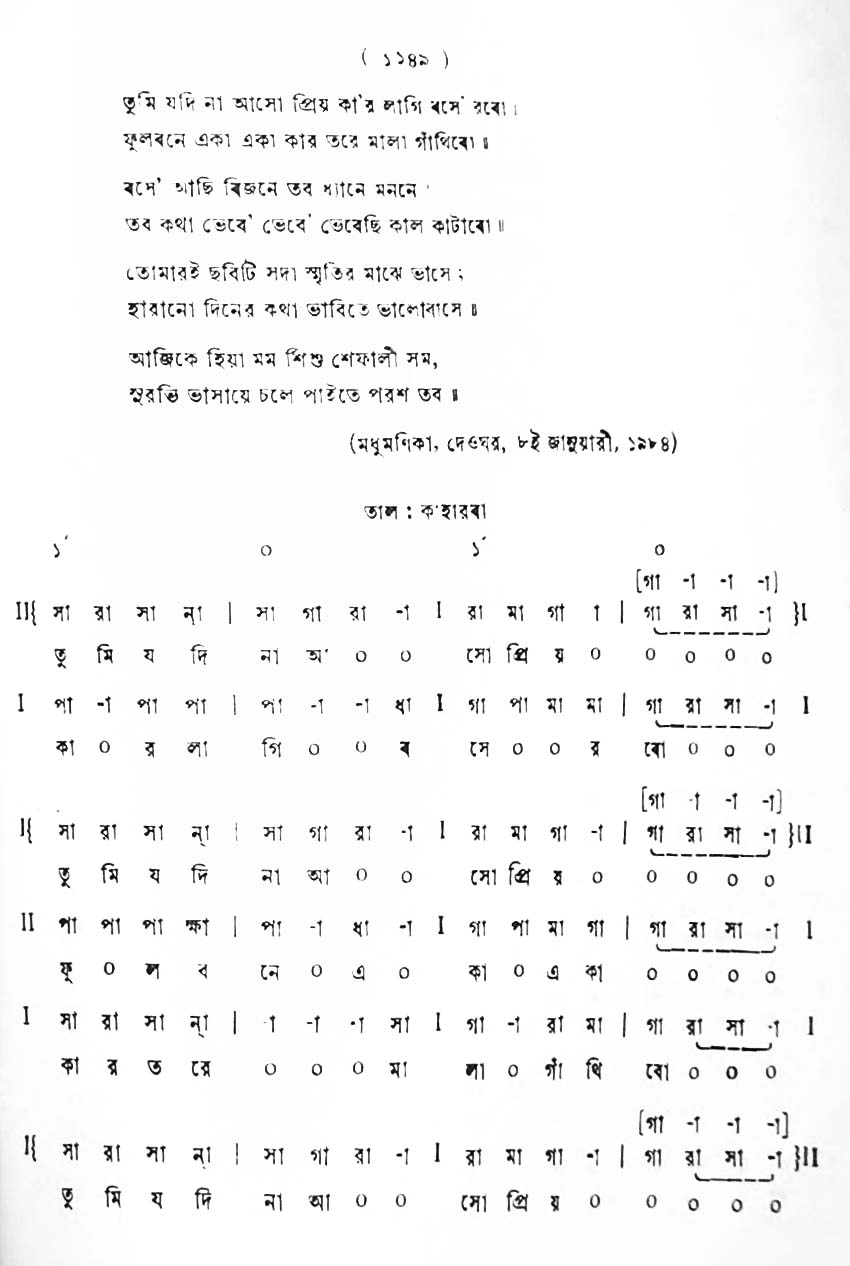 ( ১১৪৯ )
তুমি যদি না আসো প্রিয় কা'র লাগি বসে' রবো।
ফুলবনে একা একা কার তরে মালা গাঁথিবো॥
বসে' আছি বিজনে তব ধ্যানে মননে
তব কথা ভেবে' ভেবে' ভেবেছি কাল কাটাবো॥
তোমারই ছবিটি সদা স্মৃতির মাঝে ভাসে;
হারানো দিনের কথা ভাবিতে ভালোবাসে॥
আজিকে হিয়া মম শিশু শেফালী সম,
সুরভি ভাসায়ে চলে পাইতে পরশ তব॥
(মধুমণিকা, দেওঘর, ৮ই জানুয়ারী, ১৯৮৪)
তাল : কাহারবা
১´ ০ ১´ ০
[গা -া -া -া]
II{ সা রা সা ন্া | সা গা রা -া I রা মা গা া | গা রা সা -া }I
তু মি য দি না আ ০ ০ সো প্রি য় ০ ০ ০ ০ ০
I পা -া পা পা | পা -া -া ধা I গা পা মা মা | গা রা সা -া I
কা ০ র লা গি ০ ০ ব সে ০ ০ র বো ০ ০ ০
[গা া -া -া]
I{ সা রা সা ন্া | সা গা রা -া I রা মা গা -া | গা রা সা -া }II
তু মি য দি না আ ০ ০ সো প্রি য় ০ ০ ০ ০ ০
II পা পা পা ক্ষা | পা -া ধা -া I গা পা মা গা | গা রা সা -া I
ফু ০ ল ব নে ০ এ ০ কা ০ এ কা ০ ০ ০ ০
I সা রা সা ন্া | -া -া -া সা I গা -া রা মা | গা রা সা -া I
কা র ত রে ০ ০ ০ মা লা ০ গাঁ থি বো ০ ০ ০
[গা -া -া -া]
I{ সা রা সা ন্া | সা গা রা -া I রা মা গা -া | গা রা সা -া }II
তু মি য দি না আ ০ ০ সো প্রি য় ০ ০ ০ ০ ০